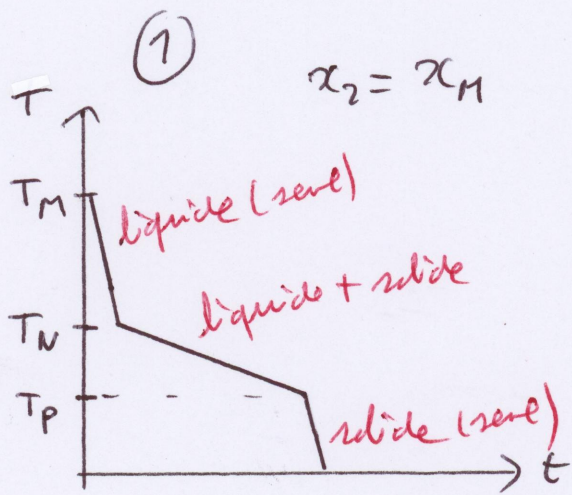 ①
x₂ = x_M
T
T_M
liquide (seul)
liquide + solide
T_N
T_P
solide (seul)
t